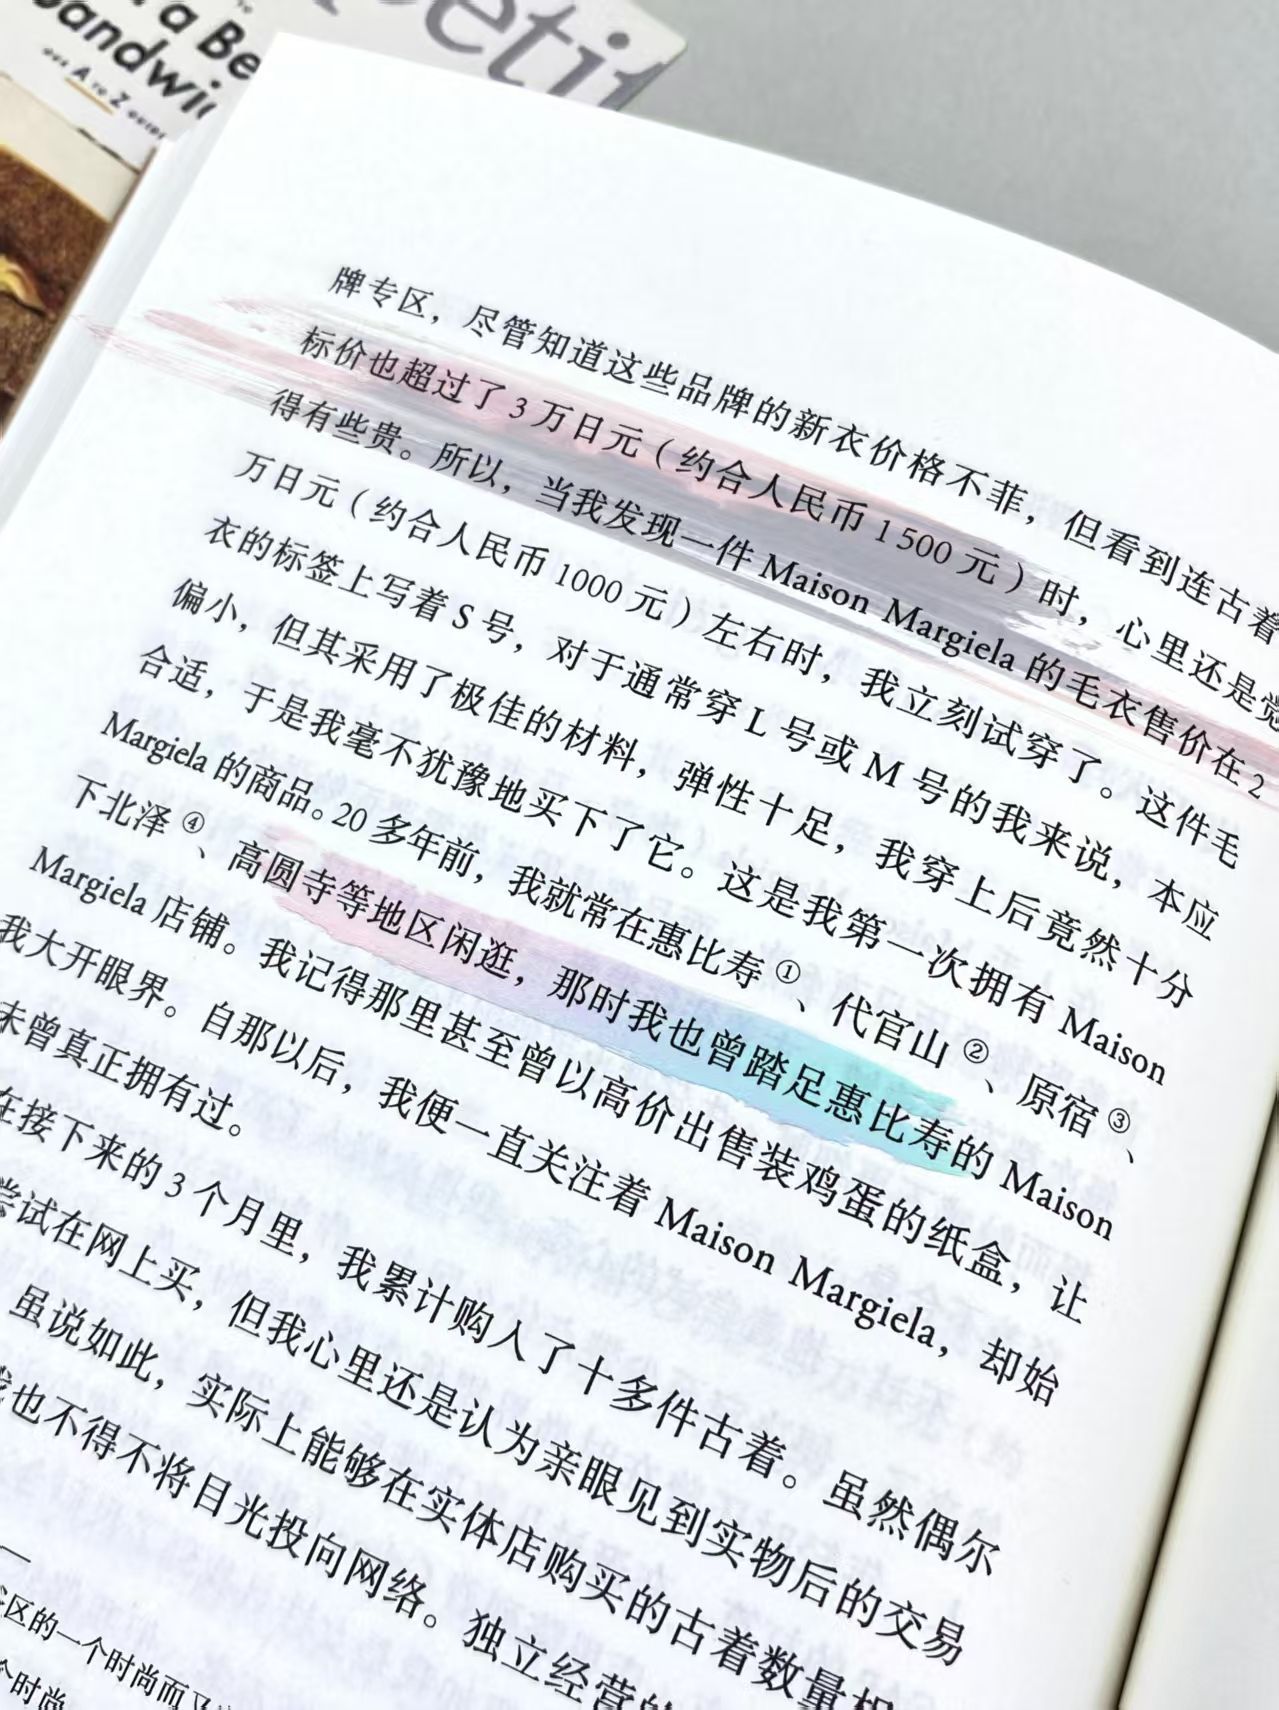 a Be
Sandwi
A TO Z GUIDE
peti
牌专区，尽管知道这些品牌的新衣价格不菲，但看到连古着
标价也超过了3万日元（约合人民币1500元）时，心里还是觉
得有些贵。所以，当我发现一件Maison Margiela的毛衣售价在2
万日元（约合人民币1000元）左右时，我立刻试穿了。这件毛
衣的标签上写着S号，对于通常穿L号或M号的我来说，本应
偏小，但其采用了极佳的材料，弹性十足，我穿上后竟然十分
合适，于是我毫不犹豫地买下了它。这是我第一次拥有Maison
Margiela的商品。20多年前，我就常在惠比寿①、代官山②、原宿③、
下北泽④、高圆寺等地区闲逛，那时我也曾踏足惠比寿的Maison
Margiela店铺。我记得那里甚至曾以高价出售装鸡蛋的纸盒，让
我大开眼界。自那以后，我便一直关注着Maison Margiela，却始
未曾真正拥有过。
在接下来的3个月里，我累计购入了十多件古着。虽然偶尔
尝试在网上买，但我心里还是认为亲眼见到实物后的交易
虽说如此，实际上能够在实体店购买的古着数量相
我也不得不将目光投向网络。独立经营的
区的一个时尚而
个时尚